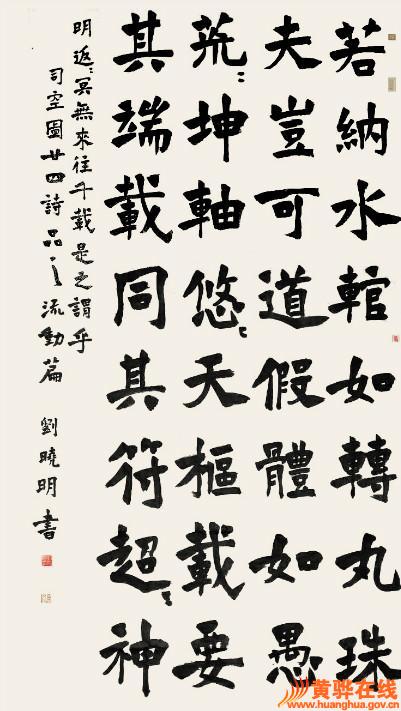 若納水輨如轉丸珠
夫豈可道假體如愚
荒〻坤軸悠〻天樞載要
其端載同其符超〻神
明返〻冥無來往千載是之謂乎
司空圖廿四詩品之流動篇 劉曉明書
黄骅在线
www.huanghua.gov.cn